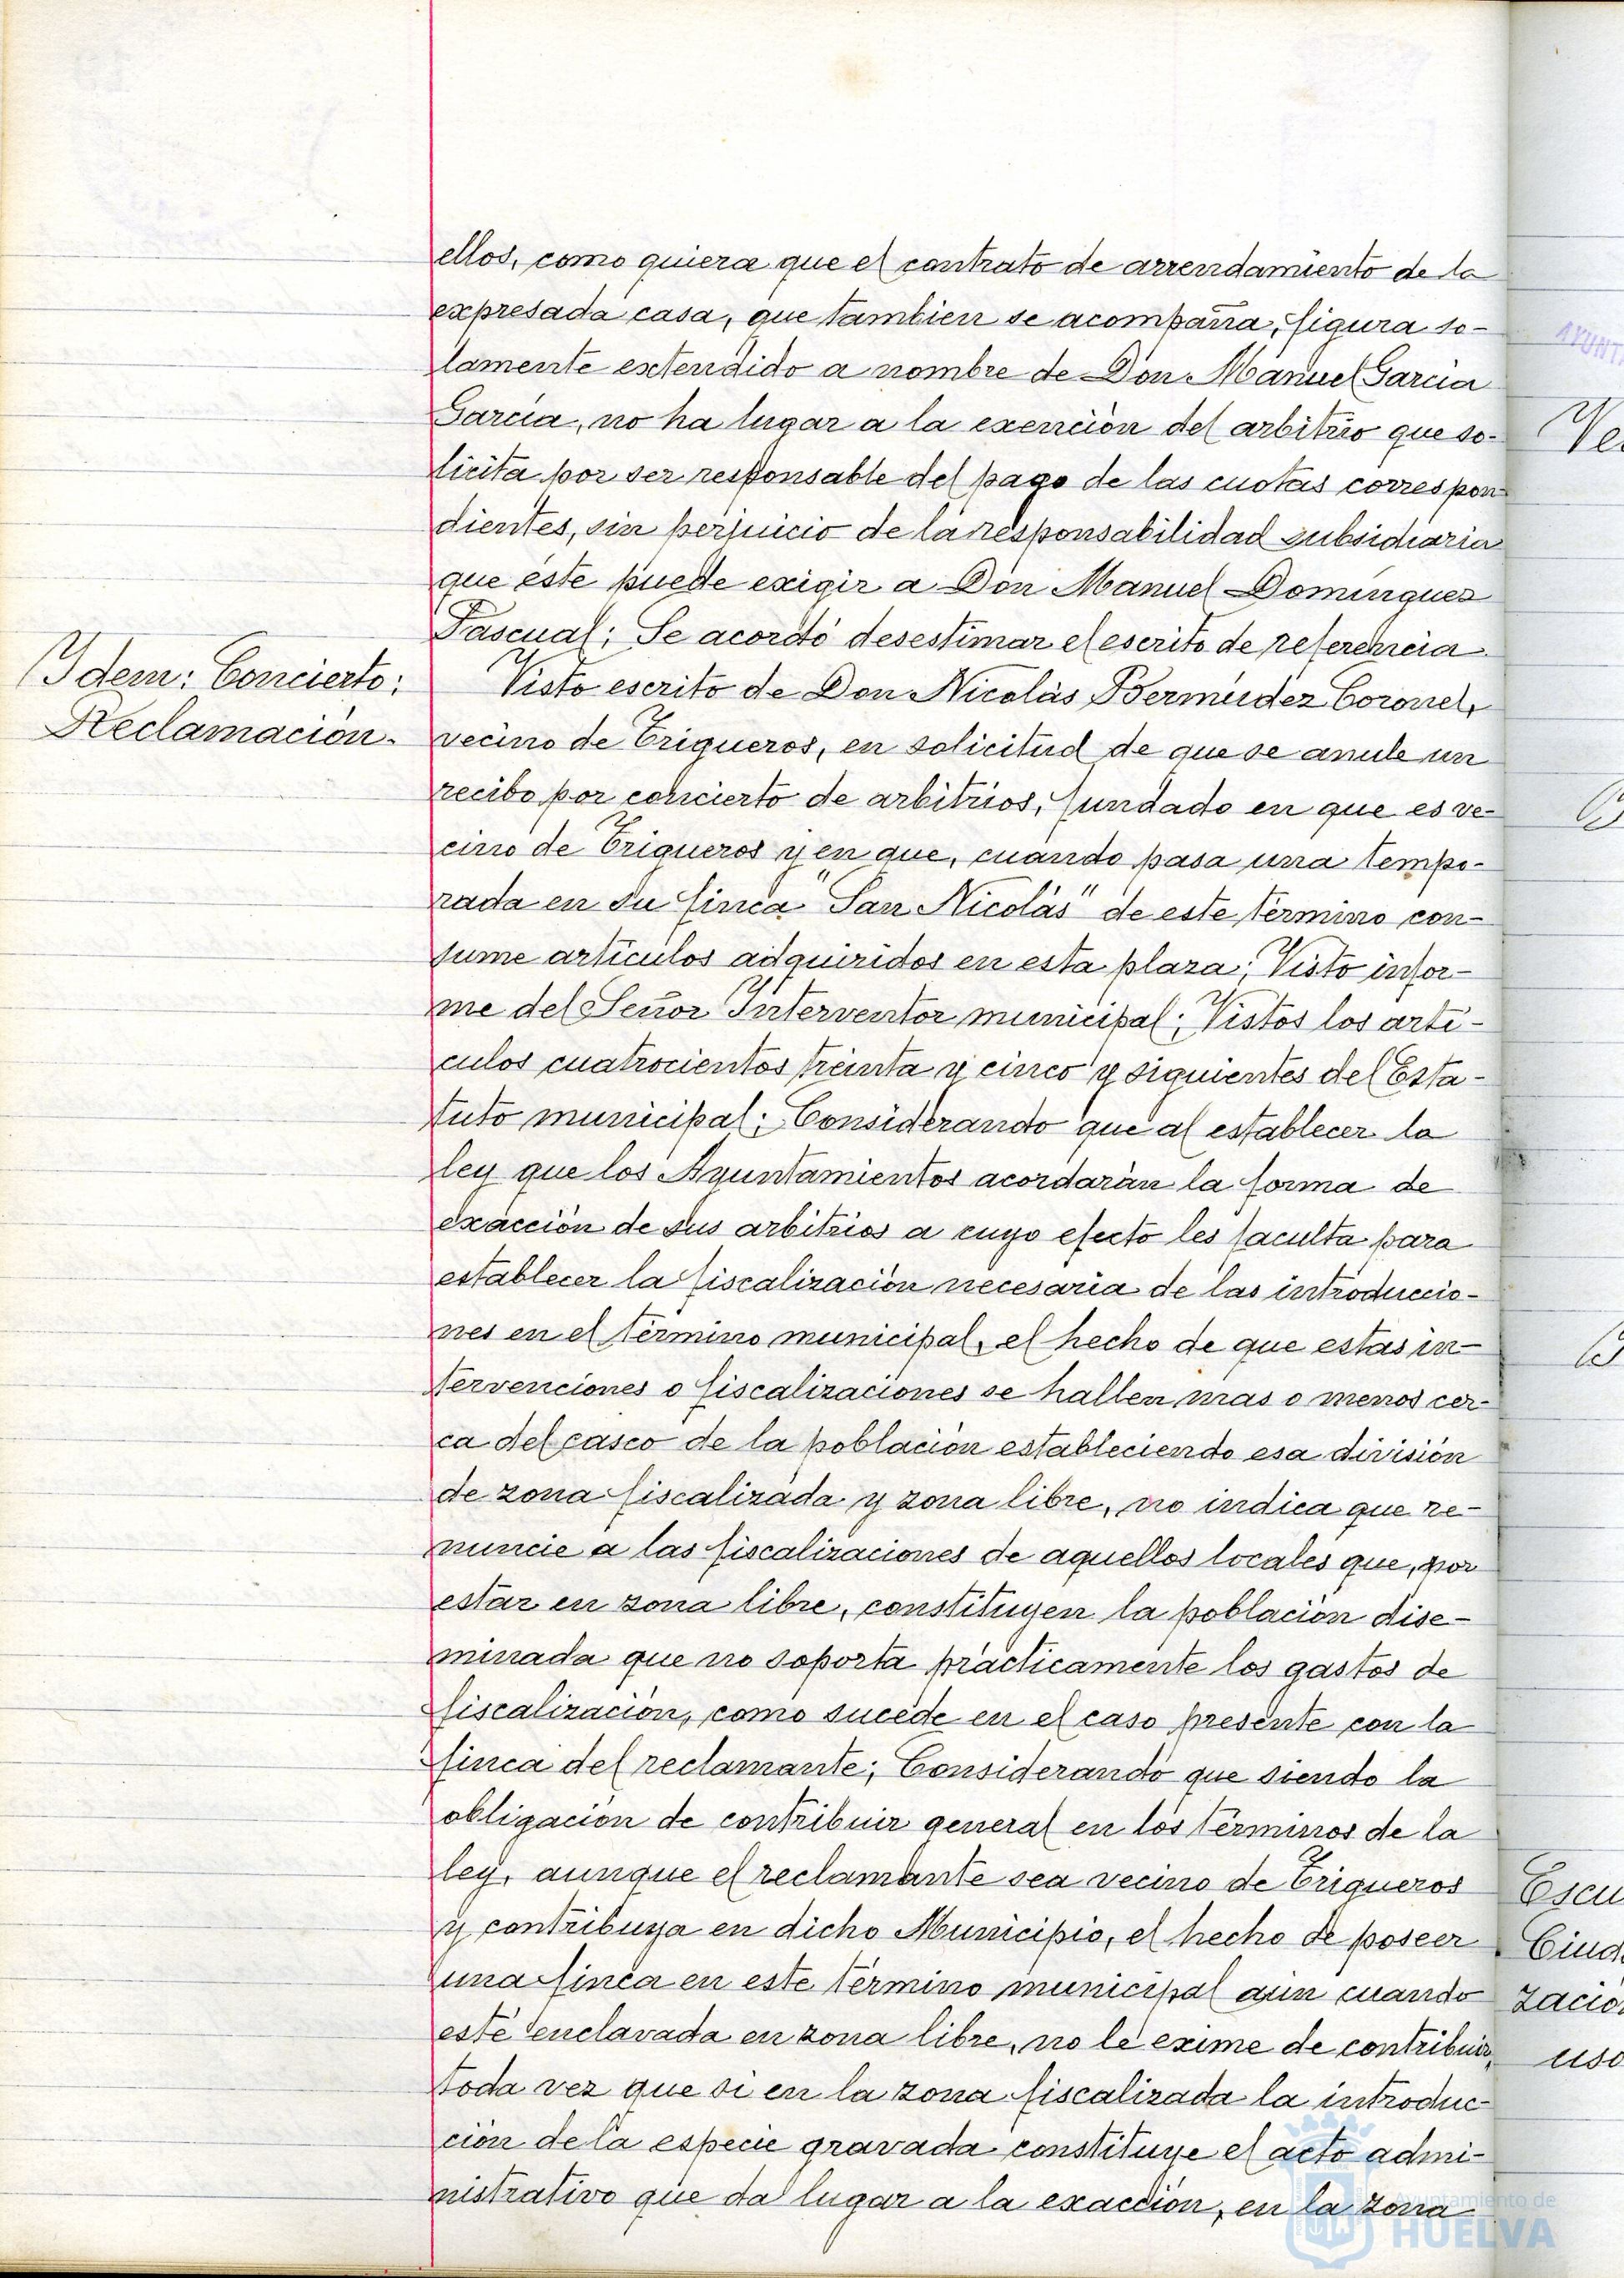 ellos, como quiera que el contrato de arrendamiento de la
expresada casa, que tambien se acompaña, figura so-
lamente extendido a nombre de Don Manuel Garcia
Garcia, no ha lugar a la exención del arbitrio que so-
licita por ser responsable del pago de las cuotas correspon
dientes, sin perjuicio de la responsabilidad subsidiaria
que éste puede exigir a Don Manuel Dominguez
Pascual; Se acordó desestimar el escrito de referencia
Idem: Concierto:
Reclamación.
Visto escrito de Don Nicolás Bermudez Coronel,
vecino de Trigueros, en solicitud de que se anule un
recibo por concierto de arbitrios, fundado en que es ve-
cino de Trigueros y en que, cuando pasa una tempo-
rada en su finca "San Nicolás" de este término con-
sume artículos adquiridos en esta plaza; Visto infor-
me del Señor Interventor municipal; Vistos los artí-
culos cuatrocientos treinta y cinco y siguientes del Esta-
tuto municipal; Considerando que al establecer la
ley que los Ayuntamientos acordarán la forma de
exacción de sus arbitrios a cuyo efecto les faculta para
establecer la fiscalización necesaria de las introduccio-
nes en el término municipal, el hecho de que estas in-
tervenciones o fiscalizaciones se hallen mas o menos cer-
ca del casco de la población estableciendo esa división
de zona fiscalizada y zona libre, no indica que re-
nuncie a las fiscalizaciones de aquellos locales que, por
estar en zona libre, constituyen la población dise-
minada que no soporta prácticamente los gastos de
fiscalización, como sucede en el caso presente con la
finca del reclamante; Considerando que siendo la
obligación de contribuir general en los términos de la
ley, aunque el reclamante sea vecino de Trigueros
y contribuya en dicho Municipio, el hecho de poseer
una finca en este término municipal aún cuando
esté enclavada en zona libre, no le exime de contribuir,
toda vez que si en la zona fiscalizada la introduc-
ción de la especie gravada constituye el acto admi-
nistrativo que da lugar a la exacción, en la zona
AYUNT
Escu
Ciud
zació
uso
Ayuntamiento de
HUELVA